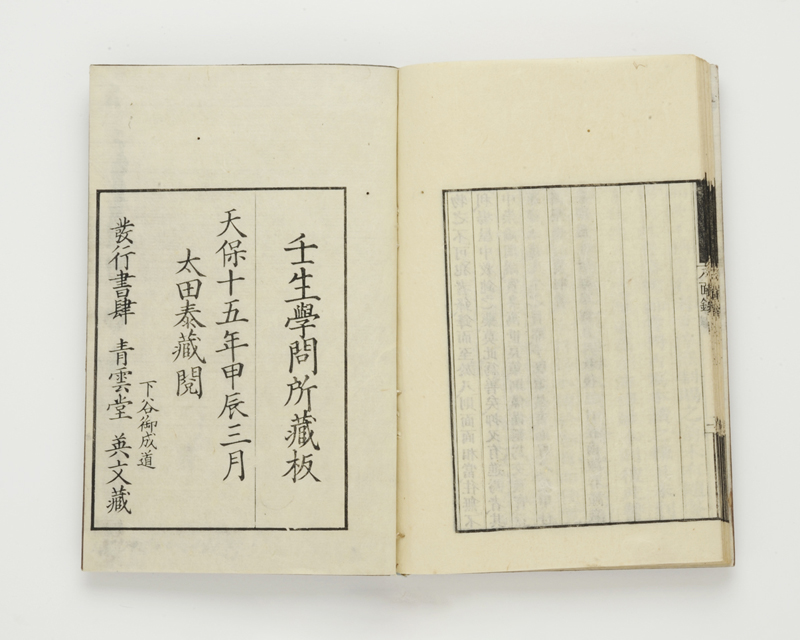 壬生學問所藏板
天保十五年甲辰三月
太田泰藏閲
下谷御成道
發行書肆 青雲堂 英文藏